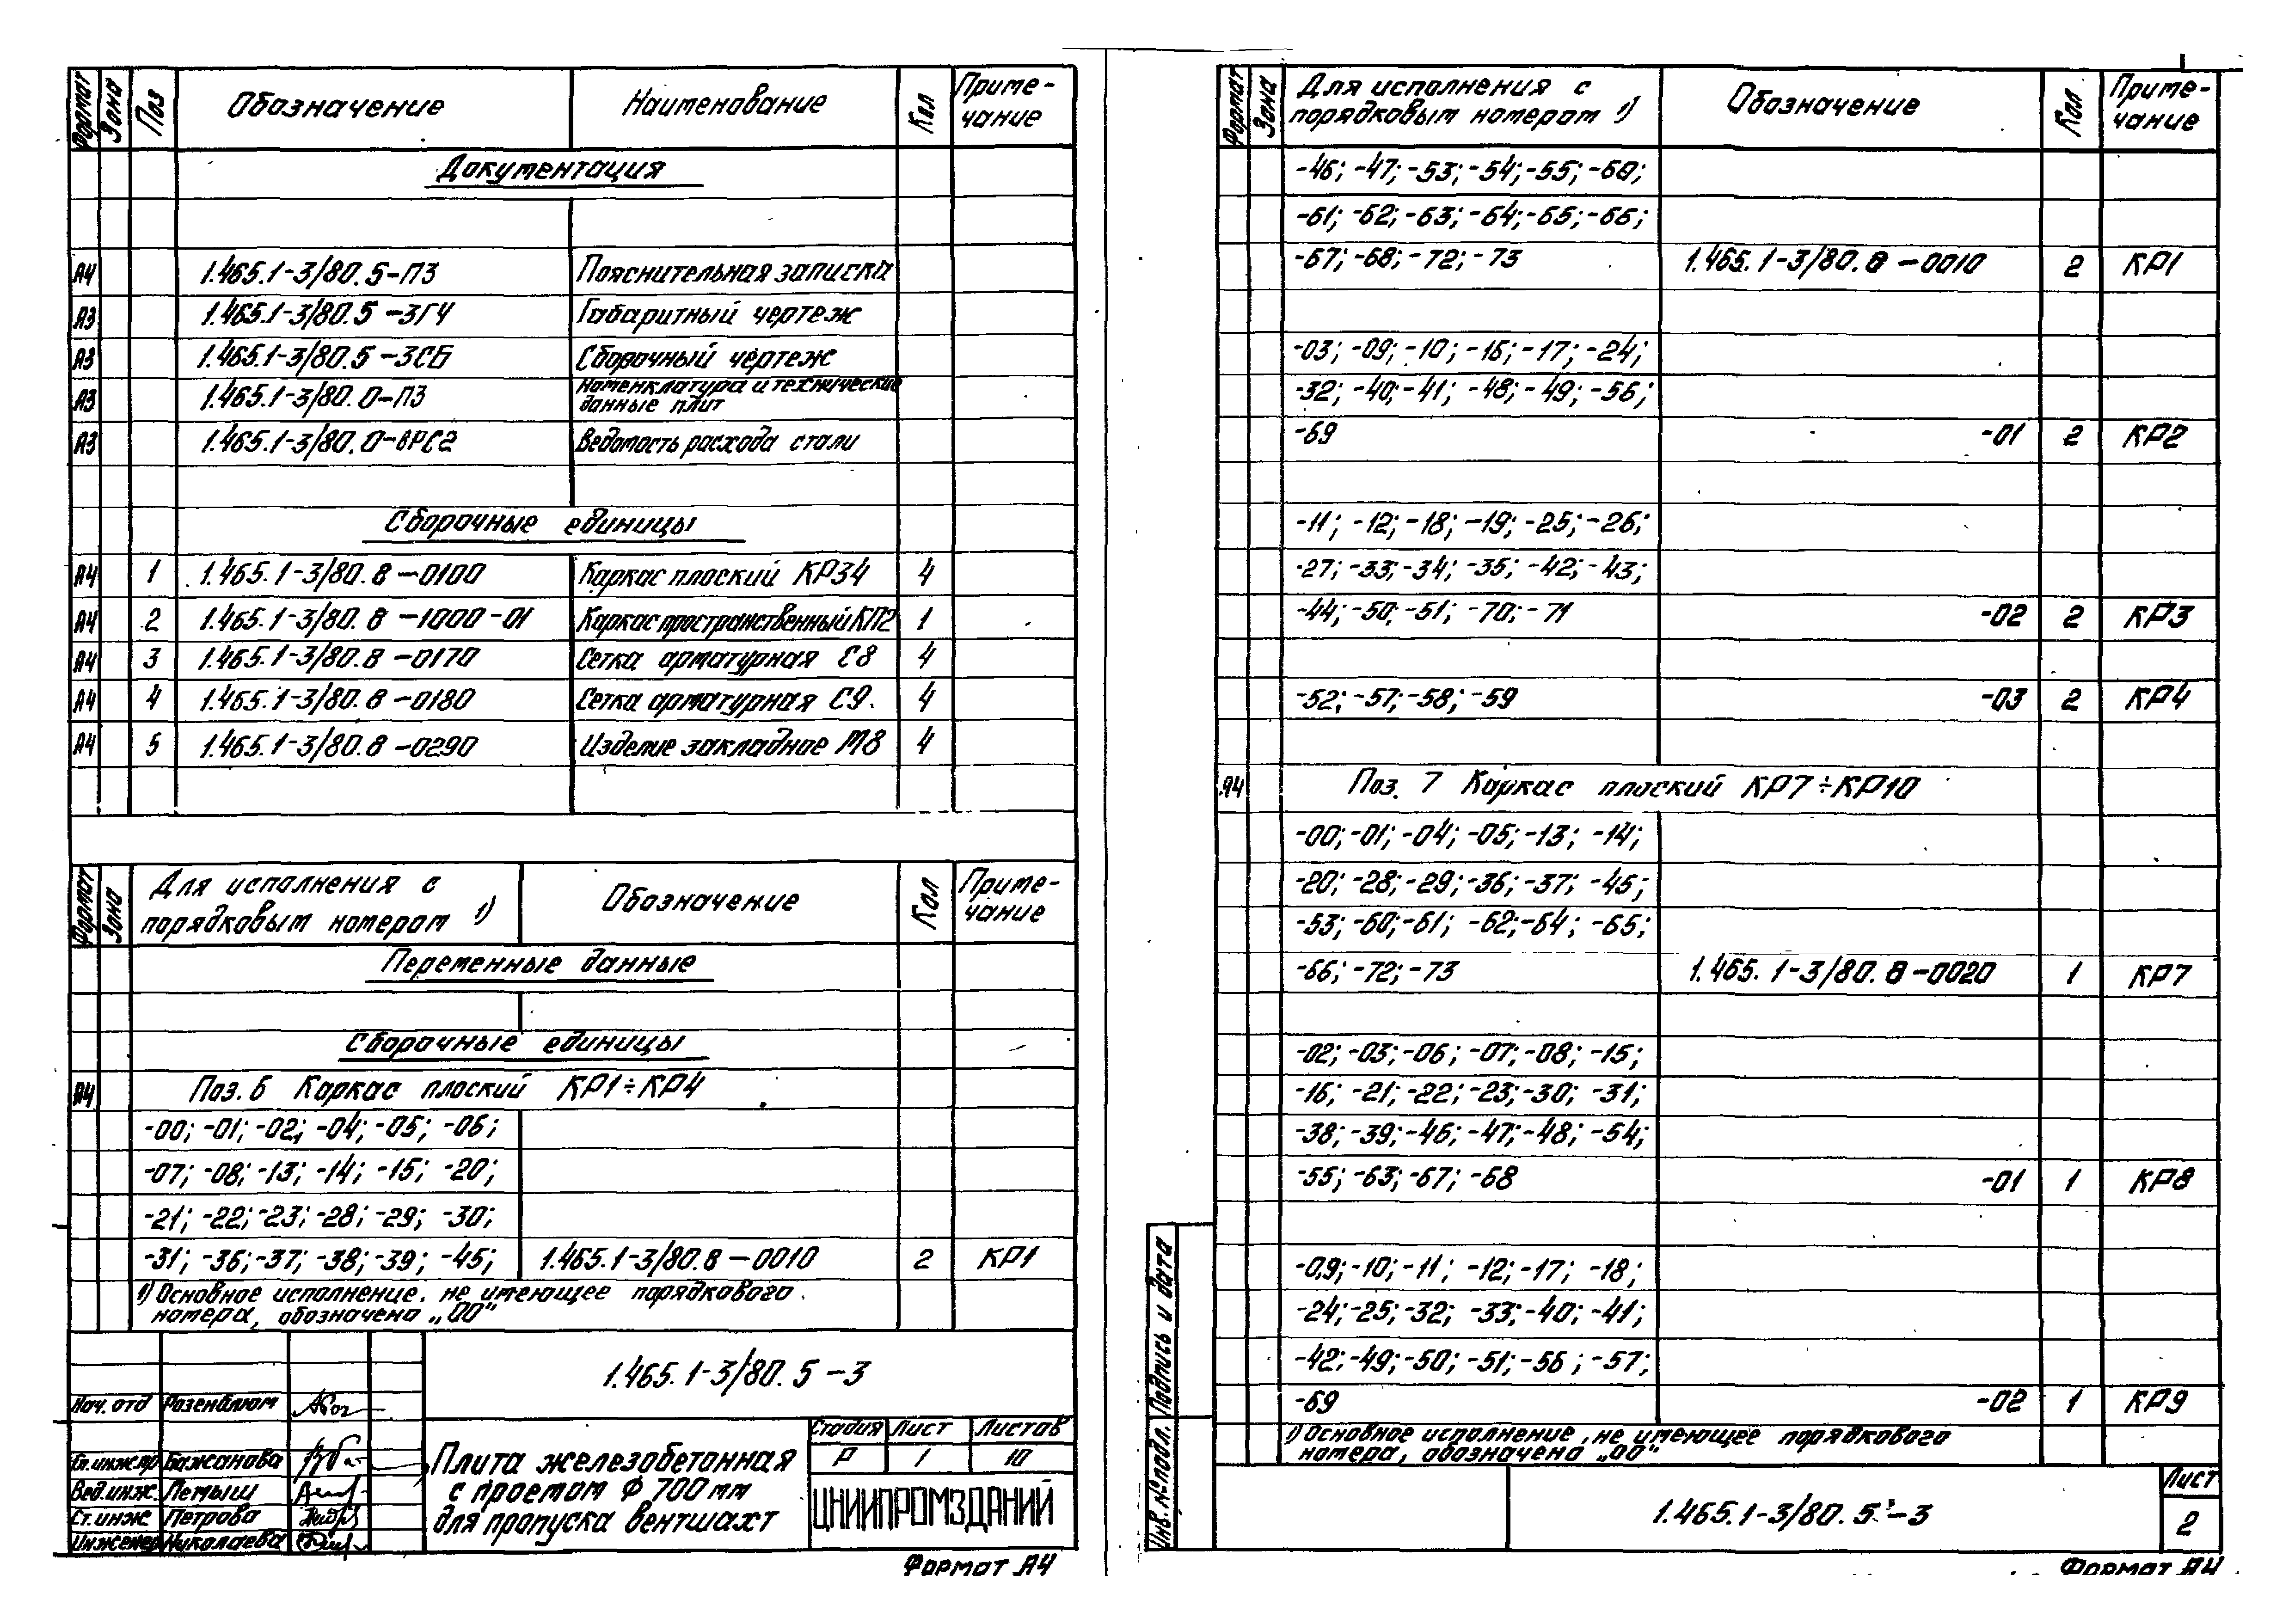 Формат Зона Поз Обозначение Наименование Кол Приме-
чание
Документация
А4 1.465.1-3/80.5-ПЗ Пояснительная записка
А3 1.465.1-3/80.5-3ГЧ Габаритный чертеж
А3 1.465.1-3/80.5-3СБ Сборочный чертеж
А3 1.465.1-3/80.0-ПЗ Номенклатура и технические
данные плит
А3 1.465.1-3/80.0-ВРС2 Ведомость расхода стали
Сборочные единицы
А4 1 1.465.1-3/80.8-0100 Каркас плоский КР34 4
А4 2 1.465.1-3/80.8-1000-01 Каркас пространственный КП2 1
А4 3 1.465.1-3/80.8-0170 Сетка арматурная С8 4
А4 4 1.465.1-3/80.8-0180 Сетка арматурная С9. 4
А4 5 1.465.1-3/80.8-0290 Изделие закладное М8 4
Формат Зона Для исполнения с
порядковым номером 1) Обозначение Кол Приме-
чание
Переменные данные
Сборочные единицы
А4 Поз. 6 Каркас плоский КР1÷КР4
-00; -01; -02; -04; -05; -06;
-07; -08; -13; -14; -15; -20;
-21; -22; -23; -28; -29; -30;
-31; -36; -37; -38; -39; -45; 1.465.1-3/80.8-0010 2 КР1
1) Основное исполнение, не имеющее порядкового
номера, обозначено „00"
1.465.1-3/80.5-3
Нач. отд Розенблюм
Гл.инж.пр Бажанова
Вед.инж. Лемыш
Ст.инж Петрова
Инженер Николаева
Плита железобетонная
с проемом Ф 700 мм
для пропуска вентшахт
Стадия Лист Листов
Р 1 10
ЦНИИПРОМЗДАНИЙ
Формат А4
Формат Зона Для исполнения с
порядковым номером 1) Обозначение Кол Приме-
чание
-46; -47; -53; -54; -55; -60;
-61; -62; -63; -64; -65; -66;
-67; -68; -72; -73 1.465.1-3/80.8-0010 2 КР1
-03; -09; -10; -16; -17; -24;
-32; -40; -41; -48; -49; -56;
-69 -01 2 КР2
-11; -12; -18; -19; -25; -26;
-27; -33; -34; -35; -42; -43;
-44; -50; -51; -70; -71 -02 2 КР3
-52; -57; -58; -59 -03 2 КР4
А4 Поз. 7 Каркас плоский КР7÷КР10
-00; -01; -04; -05; -13; -14;
-20; -28; -29; -36; -37; -45;
-53; -60; -61; -62; -64; -65;
-66; -72; -73 1.465.1-3/80.8-0020 1 КР7
-02; -03; -06; -07; -08; -15;
-16; -21; -22; -23; -30; -31;
-38; -39; -46; -47; -48; -54;
-55; -63; -67; -68 -01 1 КР8
-09; -10; -11; -12; -17; -18;
-24; -25; -32; -33; -40; -41;
-42; -49; -50; -51; -56; -57;
-69 -02 1 КР9
1) Основное исполнение, не имеющее порядкового
номера, обозначена „00"
Инв. № подл. Подпись и дата
1.465.1-3/80.5-3
Лист
2
Формат А4